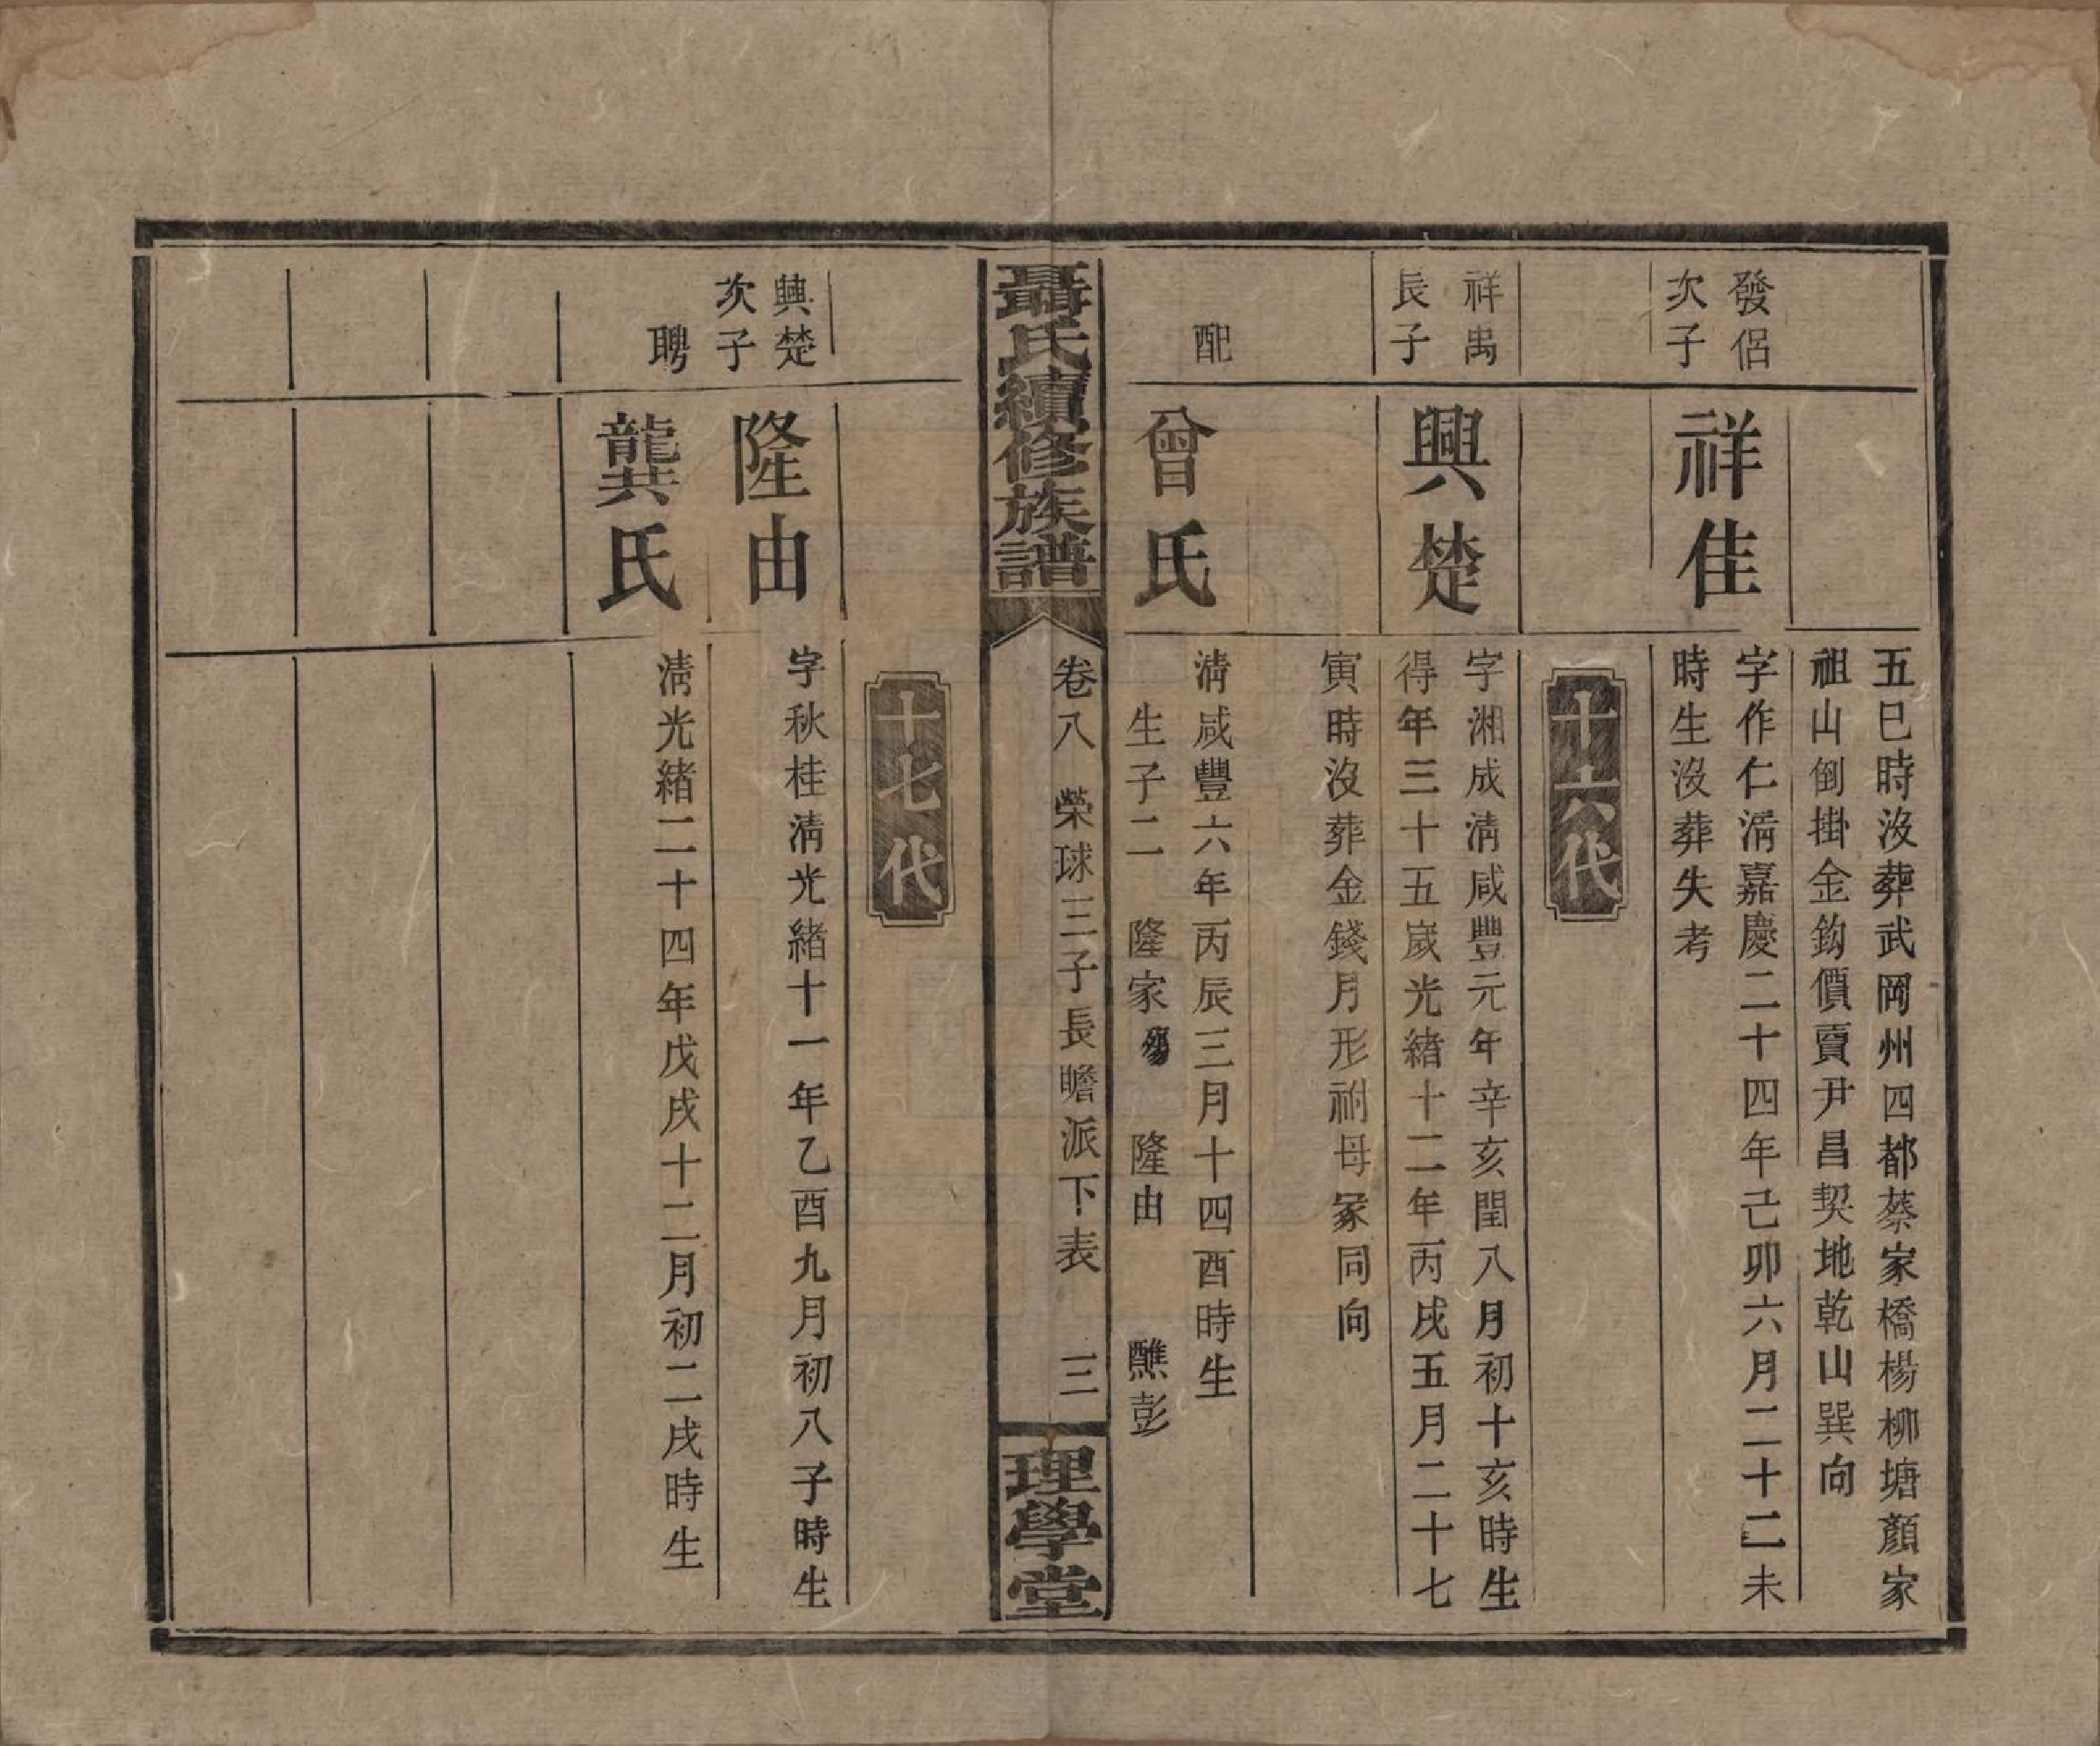 五巳時沒葬武岡州四都蔡家橋楊柳塘顏家
祖山倒掛金鈎價賣尹昌契地乾山巽向
發侶
次子
祥佳
字作仁清嘉慶二十四年己卯六月二十二未
時生沒葬失考
十六代
祥禹
長子
興楚
字湘成清咸豐元年辛亥閏八月初十亥時生
得年三十五歲光緒十二年丙戌五月二十七
寅時沒葬金錢月形祔母冢同向
配
曾氏
清咸豐六年丙辰三月十四酉時生
生子二 隆家殤 隆由 醮彭
聶氏續修族譜
卷八 榮球三子長瞻派下表 三
理學堂
十七代
興楚
次子
隆由
字秋桂清光緒十一年乙酉九月初八子時生
聘
龔氏
清光緒二十四年戊戌十二月初二戌時生